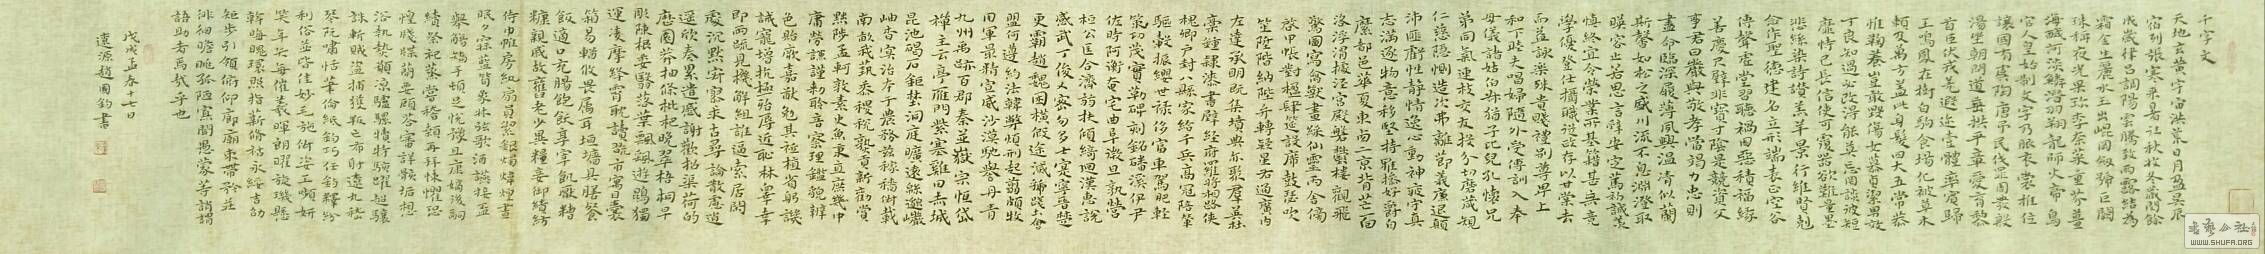 千字文
天地玄黄宇宙洪荒日月盈昃辰
宿列張寒来暑往秋收冬藏閏餘
成歲律呂調陽雲騰致雨露結為
霜金生麗水玉出崐岡劍號巨闕
珠稱夜光果珍李柰菜重芥薑
海鹹河淡鱗潛羽翔龍師火帝鳥
官人皇始制文字乃服衣裳推位
讓國有虞陶唐弔民伐罪周發殷
湯坐朝問道垂拱平章愛育黎
首臣伏戎羌遐邇壹體率賓歸
王鳴鳳在樹白駒食場化被草木
賴及萬方蓋此身髮四大五常恭
惟鞠養豈敢毀傷女慕貞潔男效
才良知過必改得能莫忘罔談彼短
靡恃己長信使可覆器欲難量墨
悲絲染詩讚羔羊景行維賢剋
念作聖德建名立形端表正空谷
傳聲虛堂習聽禍因惡積福緣
善慶尺璧非寶寸陰是競資父
事君曰嚴與敬孝當竭力忠則
盡命臨深履薄夙興溫清似蘭
斯馨如松之盛川流不息淵澄取
暎容止若思言辭安定篤初誠美
慎終宜令榮業所基籍甚無竟
學優登仕攝職從政存以甘棠去
而益詠樂殊貴賤禮别尊卑上
和下睦夫唱婦隨外受傅訓入奉
母儀諸姑伯叔猶子比兒孔懷兄
弟同氣連枝交友投分切磨箴規
仁慈隱惻造次弗離節義廉退顛
沛匪虧性靜情逸心動神疲守真
志滿逐物意移堅持雅操好爵自
縻都邑華夏東西二京背芒面
洛浮渭據涇宮殿盤鬱樓觀飛
驚圖寫禽獸畫綵仙靈丙舍傍
啓甲帳對楹肆筵設席鼓瑟吹
笙陞階納陛弁轉疑星右通廣內
左達承明既集墳典亦聚羣英杜
稾鍾隸漆書壁經府羅將相路俠
槐卿户封八縣家給千兵高冠陪輦
驅轂振纓世祿侈富車駕肥輕
策功茂實勒碑刻銘磻溪伊尹
佐時阿衡奄宅曲阜微旦孰營
桓公匡合濟弱扶傾綺迴漢惠說
感武丁俊乂密勿多士寔寧晉楚
更霸趙魏困橫假途滅虢踐土會
盟何遵約法韓弊煩刑起翦頗牧
用軍最精宣威沙漠馳譽丹青
九州禹跡百郡秦并嶽宗恒岱
禪主云亭雁門紫塞雞田赤城
昆池碣石鉅野洞庭曠遠緜邈巖
岫杳冥治本於農務茲稼穡俶載
南畝我藝黍稷稅熟貢新勸賞
黜陟孟軻敦素史魚秉直庶幾中
庸勞謙謹勑聆音察理鑑貌辨
色貽厥嘉猷勉其祗植省躬譏
誡寵增抗極殆辱近恥林皋幸
即兩疏見機解組誰逼索居閑
處沉默寂寥求古尋論散慮逍
遥欣奏累遣慼謝歡招渠荷的
歷園莽抽條枇杷晚翠梧桐早
凋陳根委翳落葉飄颻遊鵾獨
運凌摩絳霄耽讀翫市寓目囊
箱易輶攸畏屬耳垣墻具膳餐
飯適口充腸飽飫享宰飢厭糟
糠親戚故舊老少異糧妾御績紡
侍巾帷房紈扇員潔銀燭煒煌晝
眠夕寐藍筍象牀弦歌酒讌接盃
舉觴矯手頓足悅豫且康嫡後嗣
續祭祀蒸嘗稽顙再拜悚懼恐
惶牋牒簡要顧答審詳骸垢想
浴執熱願涼驢騾犢特駭躍超驤
誅斬賊盜捕獲叛亡布射遼丸嵇
琴阮嘯恬筆倫紙鈞巧任釣釋紛
利俗並皆佳妙毛施淑姿工顰妍
笑年矢每催羲暉朗曜旋璣懸
斡晦魄環照指薪修祜永綏吉劭
矩步引領俯仰廊廟束帶矜莊
徘徊瞻眺孤陋寡聞愚蒙等誚謂
語助者焉哉乎也
戊戌孟春十七日
遼源趙國鈞書
書藝公社
WWW.SHUFA.ORG